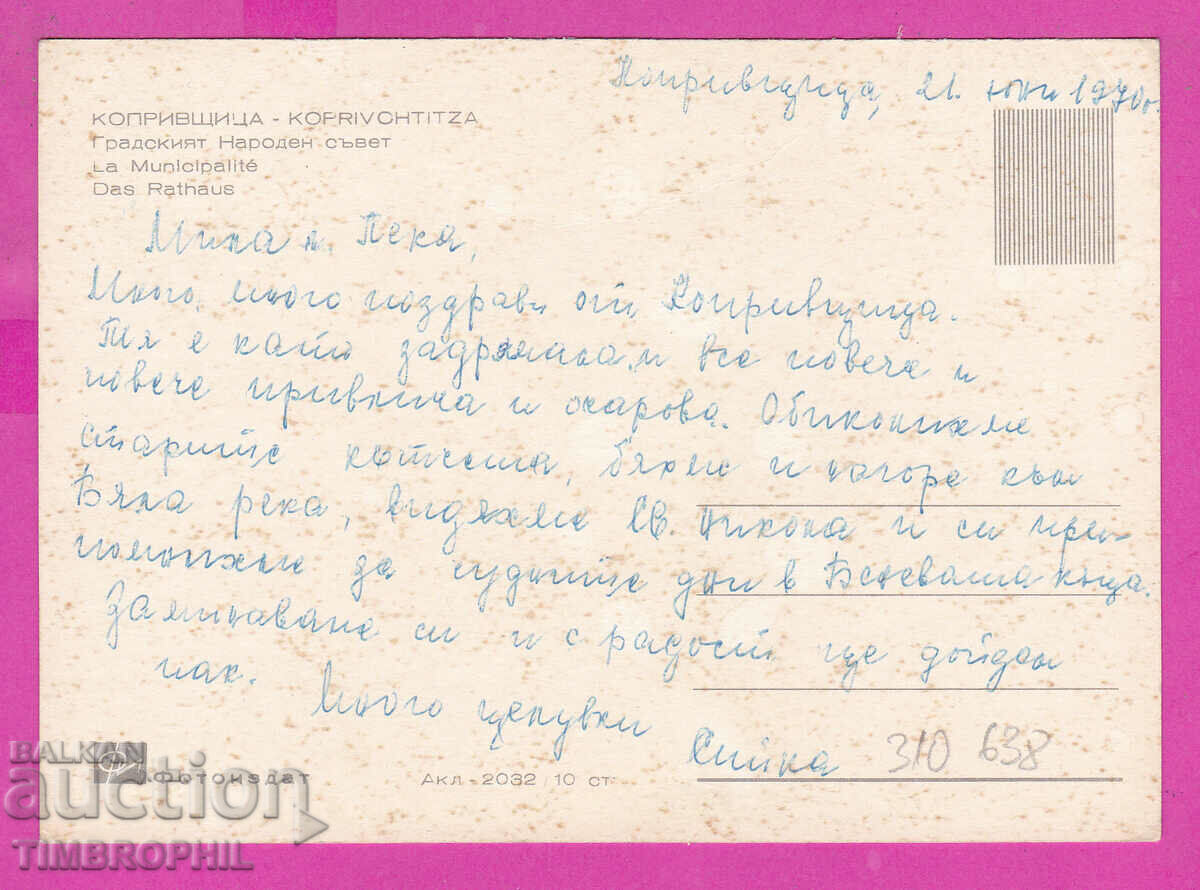 Копривщица, 21. юни 1970г.
КОПРИВЩИЦА - KOPRIVCHTITZA
Градският Народен съвет
La Municipalité
Das Rathaus
Мила л. Пека,
Много, много поздрави от Копривщица.
Тя е като задрямала и все повече и
повече привлича и очарова. Обиколихме
старите кътчета, бяхме и нагоре към
Бяла река, видяхме Св. Никола и си при-
помнихме за чудните дни в Беневата къща.
Заминаваме си и с радост ще дойдем
пак.
Много целувки
Сийка
310 638
Фотоиздат
Акл-2032 10 ст
BALKAN
auction
TIMBROPHIL